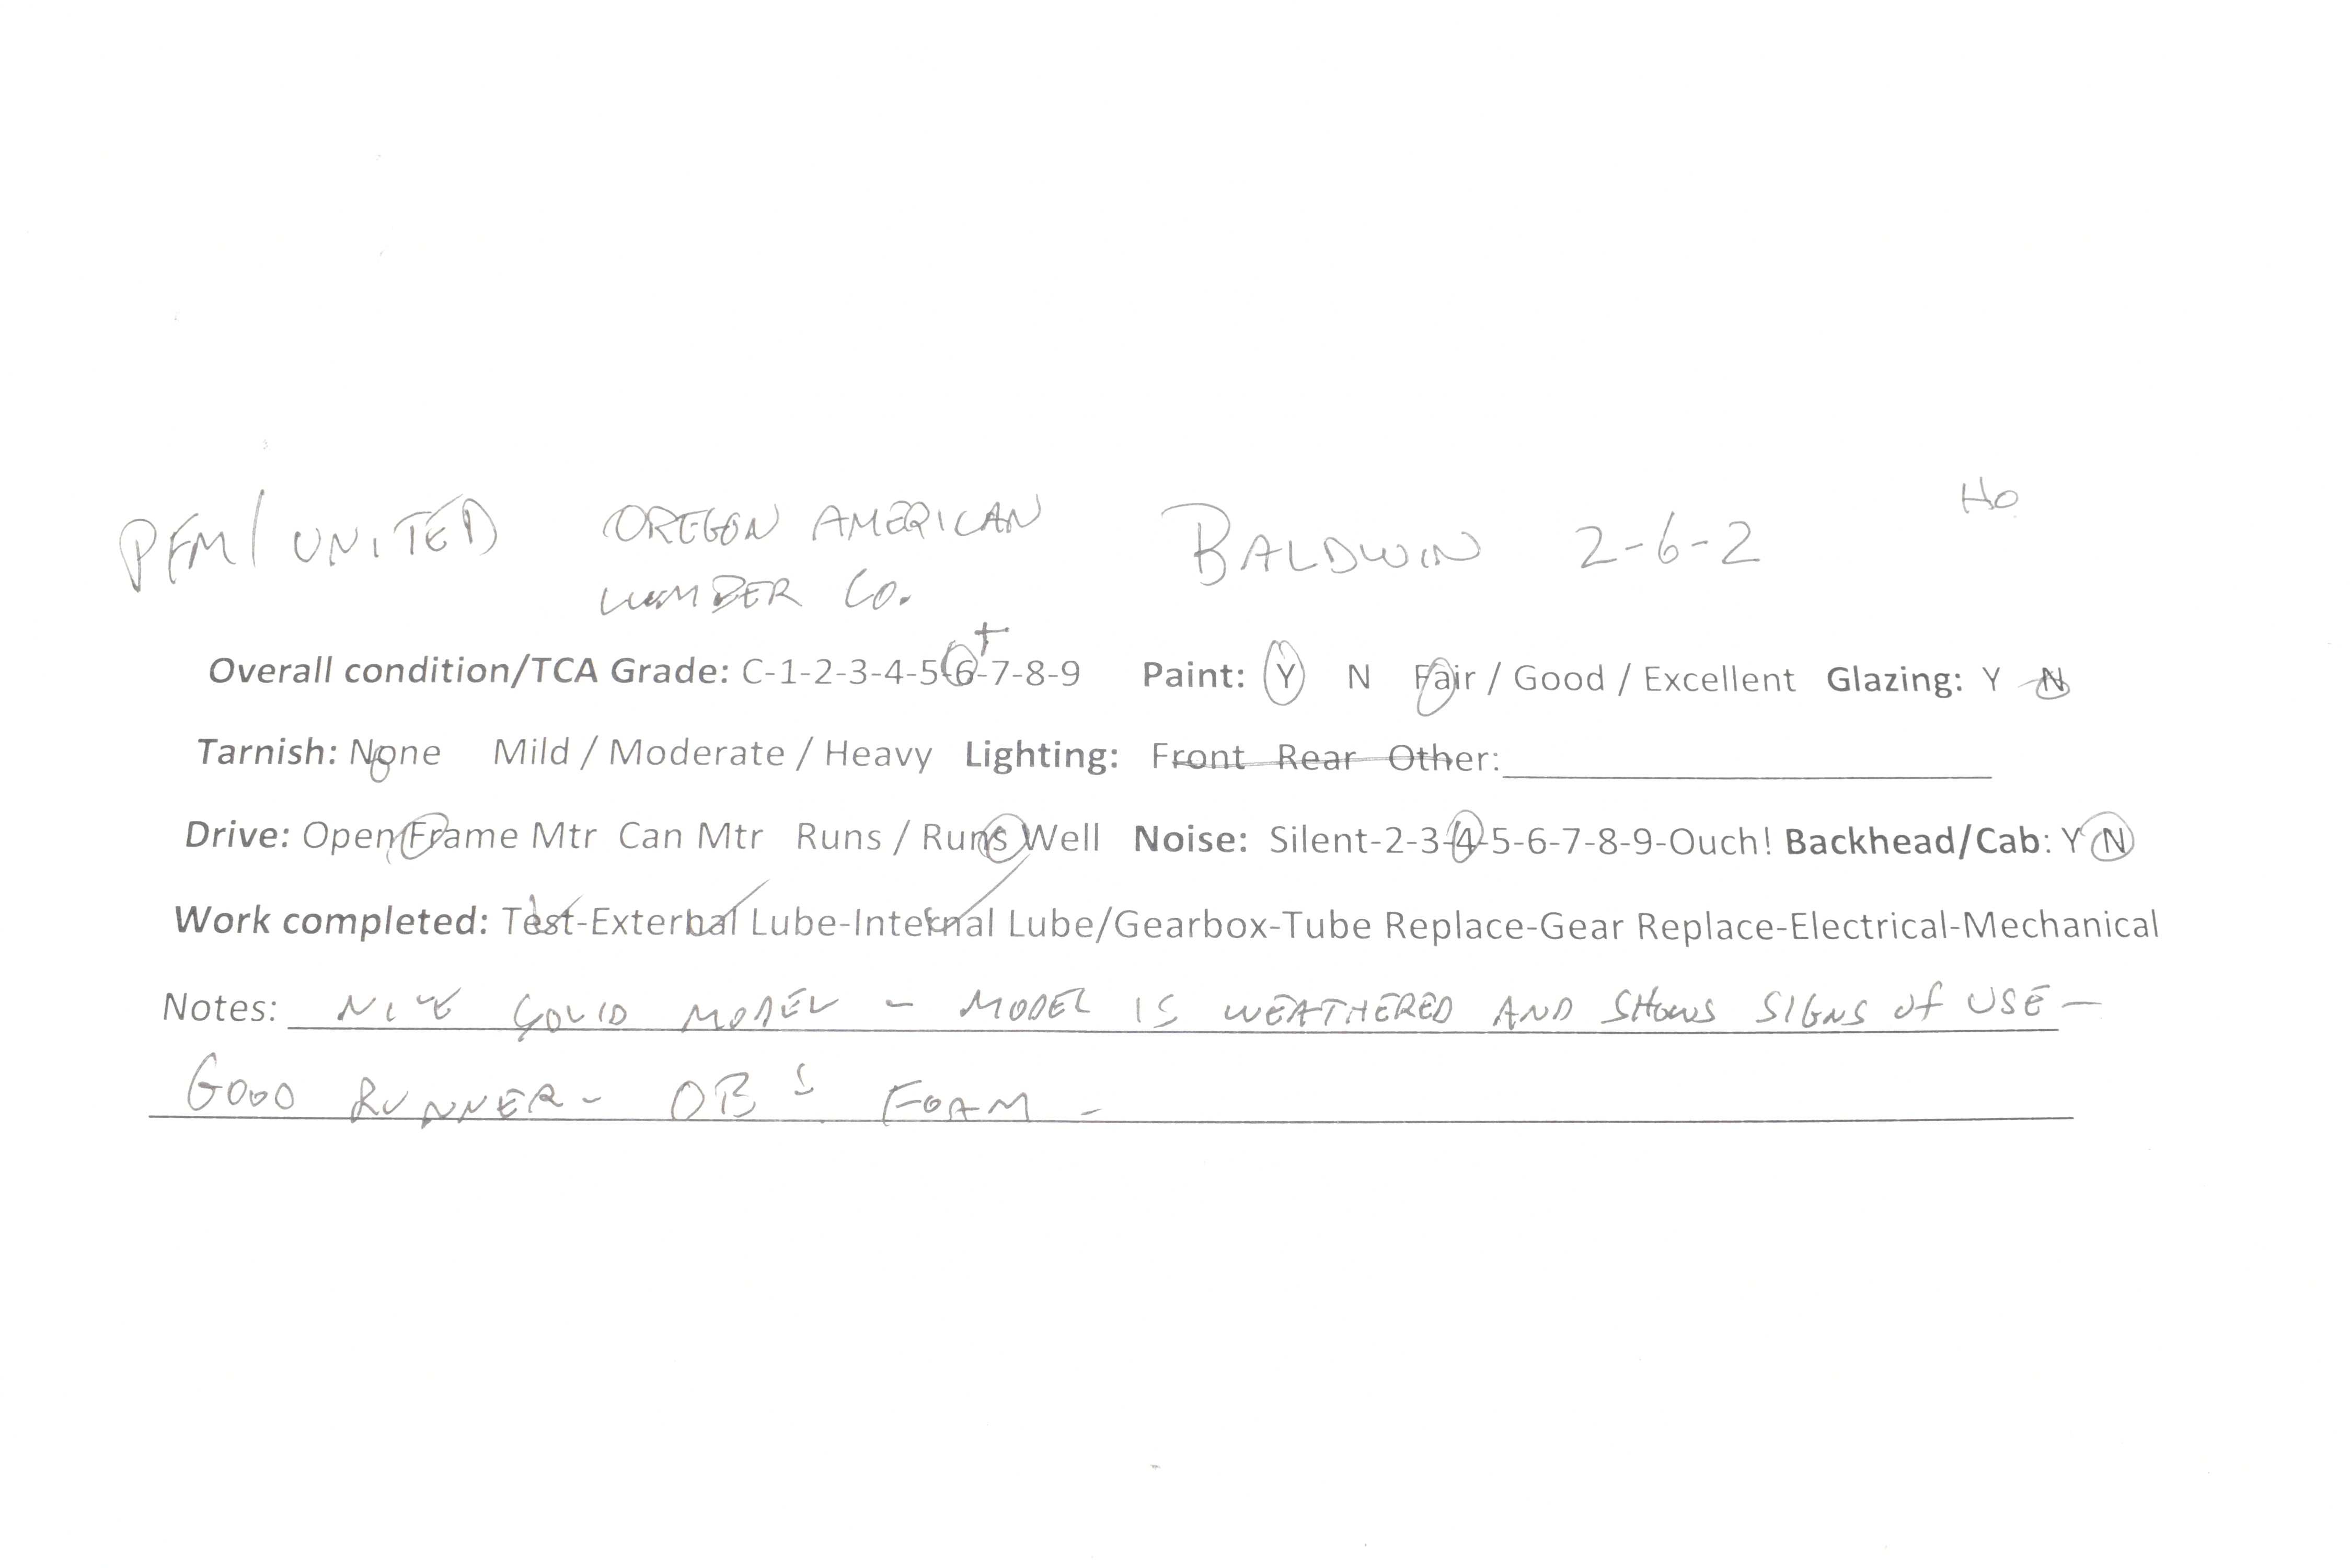 PFM/UNITED OREGON AMERICAN BALDWIN 2-6-2 HO
LUMBER CO.
Overall condition/TCA Grade: C-1-2-3-4-5-6+-7-8-9 Paint: Y N Fair / Good / Excellent Glazing: Y N
Tarnish: None Mild / Moderate / Heavy Lighting: Front Rear Other:
Drive: Open Frame Mtr Can Mtr Runs / Runs Well Noise: Silent-2-3-4-5-6-7-8-9-Ouch! Backhead/Cab: Y N
Work completed: Test-External Lube-Internal Lube/Gearbox-Tube Replace-Gear Replace-Electrical-Mechanical
Notes: NICE SOLID MODEL - MODEL IS WEATHERED AND SHOWS SIGNS OF USE -
GOOD RUNNER - OB FOAM -